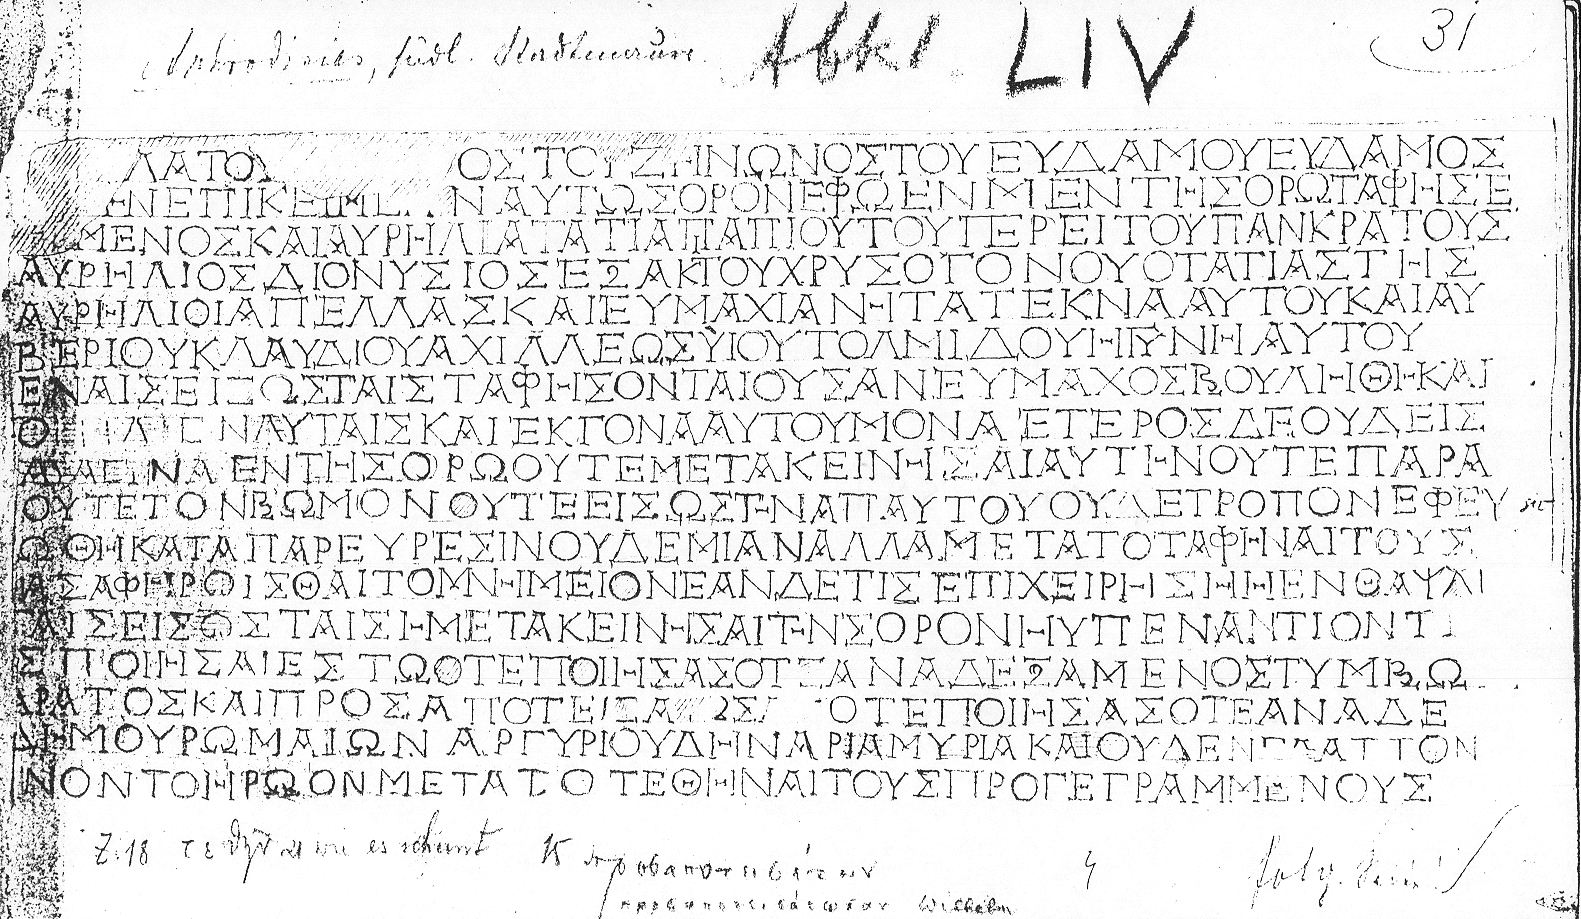 Aphrodisias, südl. Stadtmauer. Abkl. LIV 31
ΛΑΤΟΥ ΟΣΤΟΥΖΗΝΩΝΟΣΤΟΥΕΥΔΑΜΟΥΕΥΔΑΜΟΣ
ΗΝΕΠΙΚΕΙΜΕ..ΝΑΥΤΩΣΟΡΟΝΕΦΩΕΝΜΕΝΤΗΣΟΡΩΤΑΦΗΣΕ
ΜΕΝΟΣΚΑΙΑΥΡΗΛΙΑΤΑΤΙΑΠΑΠΙΟΥΤΟΥΓΕΡΕΙΤΟΥΠΑΝΚΡΑΤΟΥΣ
ΑΥΡΗΛΙΟΣΔΙΟΝΥΣΙΟΣΕΞΑΚΙΤΟΥΧΡΥΣΟΓΟΝΟΥΟΤΑΤΙΑΣΤΗΣ
ΑΥΡΗΛΙΟΙΑΠΕΛΛΑΣΚΑΙΕΥΜΑΧΙΑΝΗΤΑΤΕΚΝΑΑΥΤΟΥΚΑΙΑΥ
ΒΕΡΙΟΥΚΛΑΥΔΙΟΥΑΧΙΛΛΕΩΣΥΙΟΥΤΟΛΜΙΔΟΥΗΓΥΝΗΑΥΤΟΥ
ΕΝΑΙΣΕΙΣΩΣΤΑΙΣΤΑΦΗΣΟΝΤΑΙΟΥΣΑΝΕΥΜΑΧΟΣΒΟΥΛΗΘΗΚΑΙ
ΝΑΥΤΑΙΣΚΑΙΕΚΓΟΝΑΑΥΤΟΥΜΟΝΑΕΤΕΡΟΣΔΕΟΥΔΕΙΣ
ΕΝΤΗΣΟΡΩΟΥΤΕΜΕΤΑΚΕΙΝΗΣΑΙΑΥΤΗΝΟΥΤΕΠΑΡΑ
ΟΥΤΕΤΟΝΒΩΜΟΝΟΥΤΕΕΙΣΩΣΤΗΝΑΠΑΥΤΟΥΟΥΔΕΤΡΟΠΟΝΕΦΕΥ sic
ΩΘΗΚΑΤΑΠΑΡΕΥΡΕΣΙΝΟΥΔΕΜΙΑΝΑΛΛΑΜΕΤΑΤΟΤΑΦΗΝΑΙΤΟΥΣ
ΙΑΣΑΦΗΡΩΙΣΘΑΙΤΟΜΝΗΜΕΙΟΝΕΑΝΔΕΤΙΣΕΠΙΧΕΙΡΗΣΗΗΕΝΘΑΨΑΙ
ΤΑΙΣΕΙΣΩΣΤΑΙΣΗΜΕΤΑΚΕΙΝΗΣΑΙΤΗΝΣΟΡΟΝΗΥΠΕΝΑΝΤΙΟΝΤΙ
ΣΠΟΙΗΣΑΙΕΣΤΩΟΤΕΠΟΙΗΣΑΣΟΤΕΑΝΑΔΕΞΑΜΕΝΟΣΤΥΜΒΩ
ΑΡΑΤΟΣΚΑΙΠΡΟΣΑΠΟΤΕΙΣΑΤΩΣΑ ΟΤΕΠΟΙΗΣΑΣΟΤΕΑΝΑΔΕ
ΔΗΜΟΥΡΩΜΑΙΩΝΑΡΓΥΡΙΟΥΔΗΝΑΡΙΑΜΥΡΙΑΚΑΙΟΥΔΕΝΕΛΑΤΤΟΝ
ΝΟΝΤΟΗΡΩΟΝΜΕΤΑΤΟΤΕΘΗΝΑΙΤΟΥΣΠΡΟΓΕΓΡΑΜΜΕΝΟΥΣ
Z.18 τεθῆναι wie es scheint 15 προσαποτεισάτω
προσαποτεισάτωσαν Wilhelm